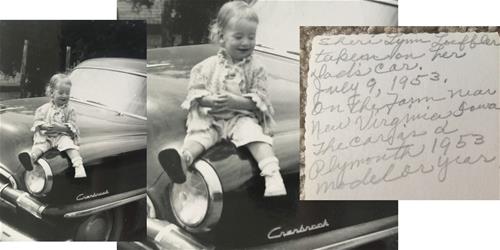 Cranbrook
Cranbrook
Sheri Lynn Loeffler
taken on her
Dad's Car.
July 9, 1953.
On the farm near
New Virginia Iowa
The Car is a
Plymouth 1953
model or year